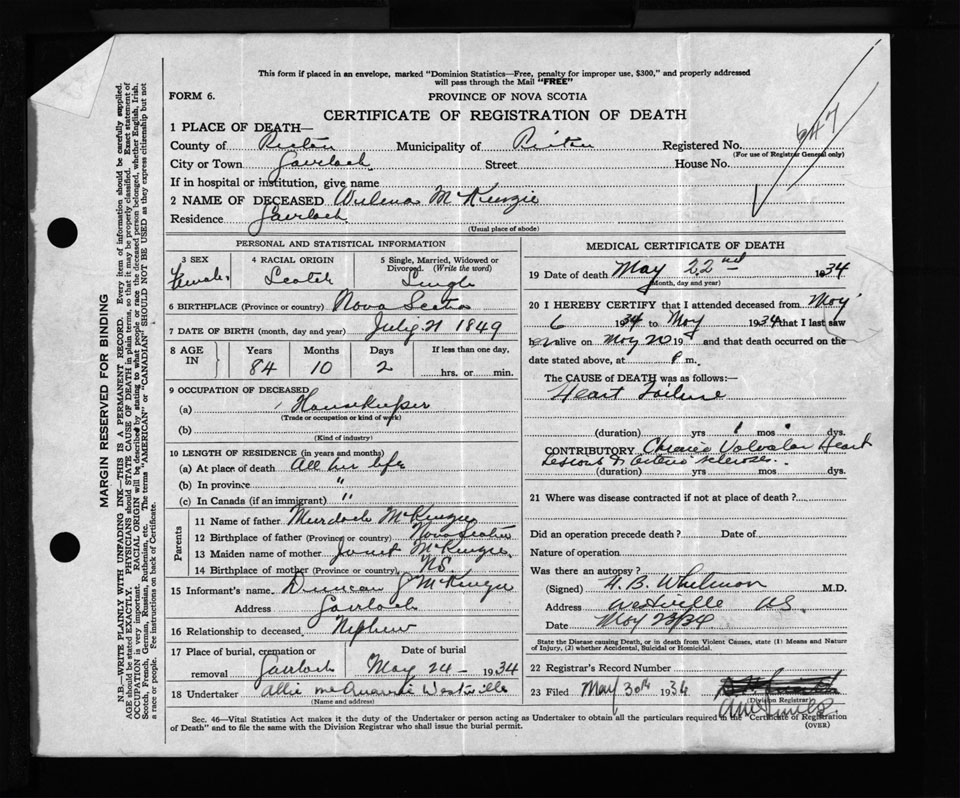 This form if placed in an envelope, marked "Dominion Statistics—Free, penalty for improper use, $300," and properly addressed
will pass through the Mail "FREE"
FORM 6.
PROVINCE OF NOVA SCOTIA
CERTIFICATE OF REGISTRATION OF DEATH
1 PLACE OF DEATH—
647
County of Pictou Municipality of Pictou Registered No.
(For use of Registrar General only)
City or Town Gairloch Street House No.
If in hospital or institution, give name
2 NAME OF DECEASED Wilena McKenzie
Residence Gairloch
(Usual place of abode)
PERSONAL AND STATISTICAL INFORMATION
3 SEX 4 RACIAL ORIGIN 5 Single, Married, Widowed or Divorced. (Write the word)
Female Scotch Single
6 BIRTHPLACE (Province or country) Nova Scotia
7 DATE OF BIRTH (month, day and year) July 21 1849
8 AGE IN Years Months Days If less than one day,
84 10 2 hrs. or min.
9 OCCUPATION OF DECEASED
(a) Housekeeper
(Trade or occupation or kind of work)
(b)
(Kind of industry)
10 LENGTH OF RESIDENCE (in years and months)
(a) At place of death All her life
(b) In province "
(c) In Canada (if an immigrant) "
Parents
11 Name of father Murdoch McKenzie
12 Birthplace of father (Province or country) Nova Scotia
13 Maiden name of mother Janet McKenzie
14 Birthplace of mother (Province or country) N.S.
15 Informant's name Duncan J McKenzie
Address Gairloch
16 Relationship to deceased Nephew
17 Place of burial, cremation or removal Gairloch Date of burial May 24 - 1934
18 Undertaker Allie McQuarrie Westville
(Name and address)
MEDICAL CERTIFICATE OF DEATH
19 Date of death May 22nd 1934
(Month, day and year)
20 I HEREBY CERTIFY that I attended deceased from May
6 1934 to May 1934 that I last saw
her alive on May 20 19 and that death occurred on the
date stated above, at P m.
The CAUSE of DEATH was as follows:—
Heart Failure
(duration) yrs mos dys.
CONTRIBUTORY Chronic Valvular Heart
Lesions & Arterio sclerosis.
(duration) yrs mos dys.
21 Where was disease contracted if not at place of death?
Did an operation precede death? Date of
Nature of operation
Was there an autopsy?
(Signed) H. B. Whitman M.D.
Address Westville N.S.
Date May 23/34
State the Disease causing Death, or in death from Violent Causes, state (1) Means and Nature
of Injury, (2) whether Accidental, Suicidal or Homicidal.
22 Registrar's Record Number
23 Filed May 30th 1934
(Division Registrar)
Sec. 46—Vital Statistics Act makes it the duty of the Undertaker or person acting as Undertaker to obtain all the particulars required in the "Certificate of Registration
of Death" and to file the same with the Division Registrar who shall issue the burial permit.
(OVER)
MARGIN RESERVED FOR BINDING
N.B.—WRITE PLAINLY WITH UNFADING INK—THIS IS A PERMANENT RECORD. Every item of information should be carefully supplied.
AGE should be stated EXACTLY. PHYSICIANS should STATE CAUSE OF DEATH in plain terms, so that it may be properly classified. Exact statement of
OCCUPATION is very important. RACIAL ORIGIN will be described by stating to what people or race the deceased person belonged, whether English, Irish,
Scotch, French, German, Russian, Ruthenian, etc. The terms "AMERICAN" or "CANADIAN" SHOULD NOT BE USED as they express citizenship but not
a race or people. See instructions on back of Certificate.